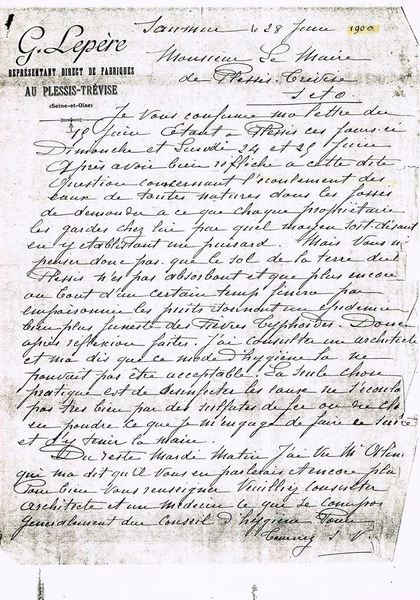 Saumur le 28 Juin 1900
G. Lepère
REPRÉSENTANT DIRECT DE FABRIQUES
AU PLESSIS-TRÉVISE
(Seine-et-Oise)
Monsieur Le Maire
de Plessis-Trévise
S et O
Je Vous confirme ma lettre du
18 Juin Etant à Plessis ces Jours ci
Dimanche et Lundi 24 et 25 Juin
Après avoir bien réfléchi a cette dite
question concernant l'écoulement des
eaux de toutes natures dans les fossés
de demander a ce que chaque propriétaire
les gardes chez lui par quel moyen soit disant
en y etablissant un puisard. Mais Vous ne
penser donc pas que le sol de la terre du
Plessis n'es pas absorbant et que plus encore
au bout d'un certain temp finira par
empoisonner les puits donnant une epidemie
bien plus funeste des fièvres typhoïdes. Donc
après réflexion faites. J'ai consulter un architecte
et ma dis que ce mode d'hygiène la ne
pouvait pas être acceptable. La seule chose
pratique est de desinfecter les eaux ne s'écoulant
pas très bien par des sulfates de fer ou du
en poudre ce que je m'engage de faire
et d'y tenir la main.
Du reste Mardi Matin J'ai Vu Mr
qui ma dit qu'il Vous en parlerais et encore plus
Pour bien Vous renseigner Veuillez consulter
architecte et un médecin ce que se compose
Generalement du Conseil d'hygiène
T. S. V.